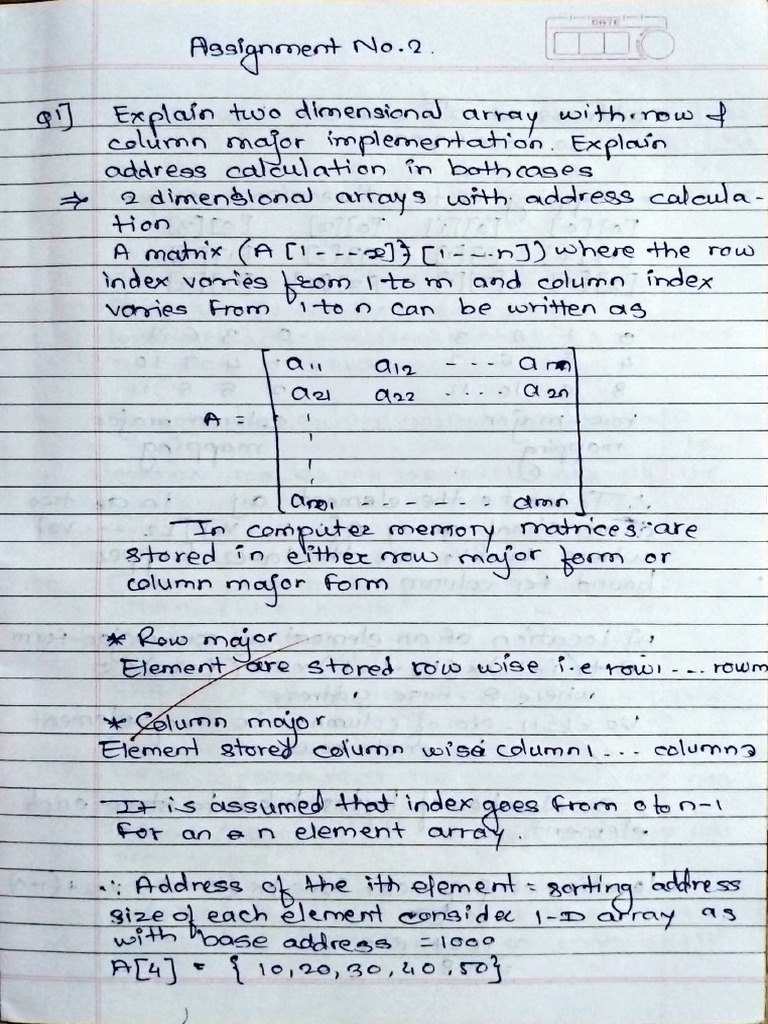 DATE
Assignment No.2.
Q1] Explain two dimensional array with row &
column major implementation. Explain
address calculation in both cases
⇒ 2 dimensional arrays with address calcula-
tion
A matrix (A [1---x]} [1---n]) where the row
index varies from 1 to m and column index
varies from 1 to n can be written as
a11 a12 ---- a1n
a21 a22 ---- a2n
A =
am1 ------- amn
In computer memory matrices are
stored in either row major form or
column major form
* Row major
Element are stored row wise i.e row1 ... rowm
* Column major
Element stored column wise column1 ... column
It is assumed that index goes from 0 to n-1
for an n element array.
∴ Address of the ith element = sorting address
size of each element consider 1-D array as
with base address = 1000
A[4] = { 10,20,30,40,50}